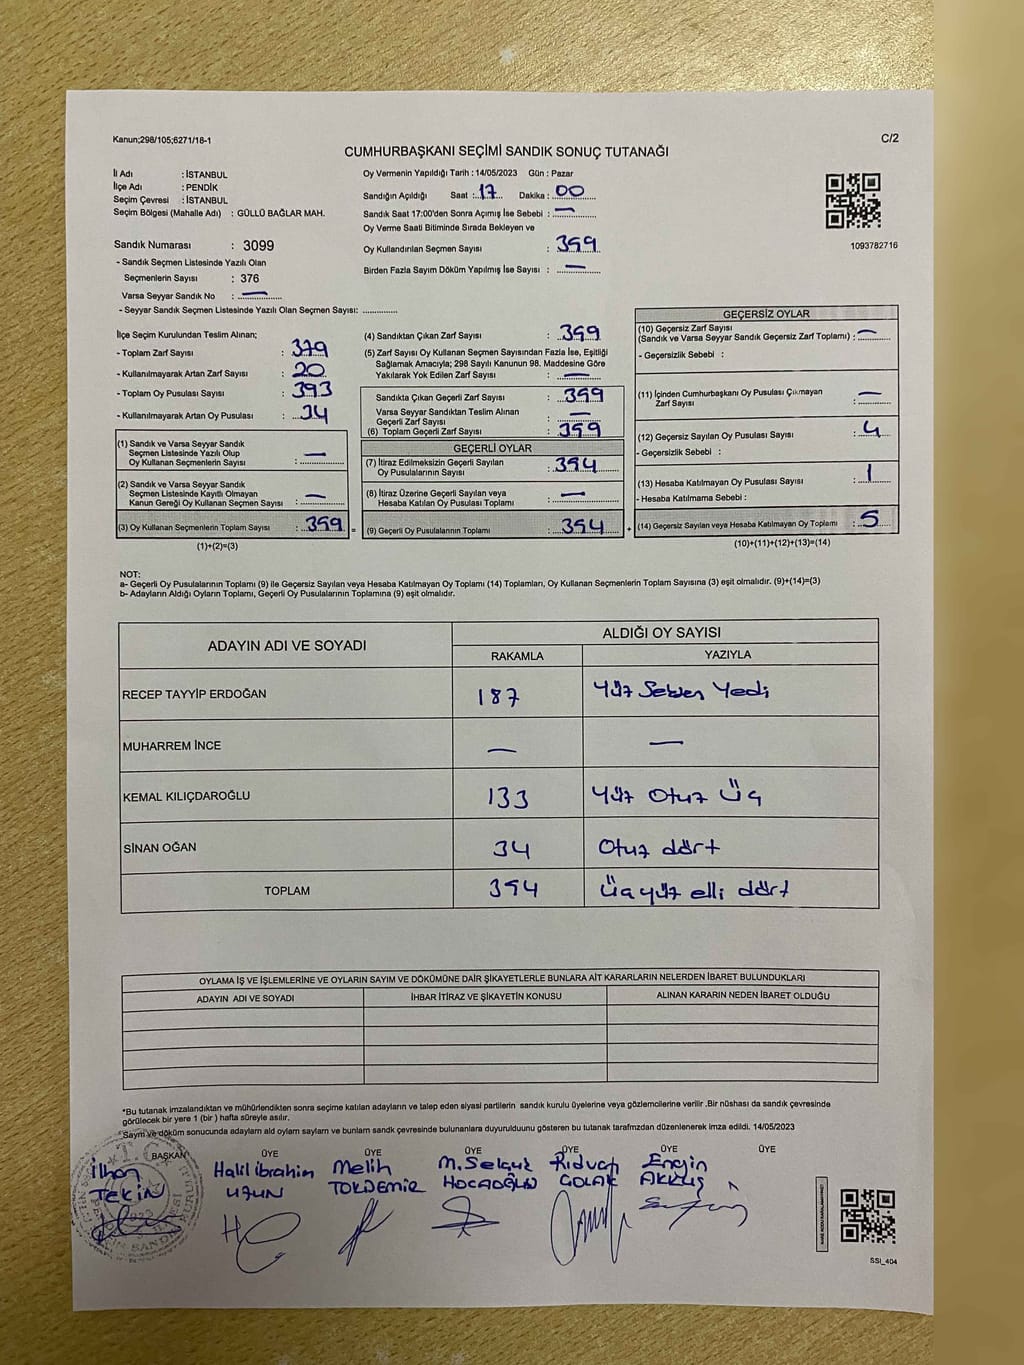 Kanun;298/105;6271/18-1
C/2
CUMHURBAŞKANI SEÇİMİ SANDIK SONUÇ TUTANAĞI
İl Adı : İSTANBUL
İlçe Adı : PENDİK
Seçim Çevresi : İSTANBUL
Seçim Bölgesi (Mahalle Adı) : GÜLLÜ BAĞLAR MAH.
Sandık Numarası : 3099
- Sandık Seçmen Listesinde Yazılı Olan
Seçmenlerin Sayısı : 376
Varsa Seyyar Sandık No : —
- Seyyar Sandık Seçmen Listesinde Yazılı Olan Seçmen Sayısı: ............
Oy Vermenin Yapıldığı Tarih : 14/05/2023 Gün : Pazar
Sandığın Açıldığı Saat : 17 Dakika : 00
Sandık Saat 17:00'den Sonra Açımış İse Sebebi : —
Oy Verme Saati Bitiminde Sırada Bekleyen ve
Oy Kullandırılan Seçmen Sayısı : 359
Birden Fazla Sayım Döküm Yapılmış İse Sayısı : —
1093782716
İlçe Seçim Kurulundan Teslim Alınan;
- Toplam Zarf Sayısı : 379
- Kullanılmayarak Artan Zarf Sayısı : 20
- Toplam Oy Pusulası Sayısı : 393
- Kullanılmayarak Artan Oy Pusulası : 34
(1) Sandık ve Varsa Seyyar Sandık
Seçmen Listesinde Yazılı Olup
Oy Kullanan Seçmenlerin Sayısı : —
(2) Sandık ve Varsa Seyyar Sandık
Seçmen Listesinde Kayıtlı Olmayan
Kanun Gereği Oy Kullanan Seçmen Sayısı : —
(3) Oy Kullanan Seçmenlerin Toplam Sayısı : 359 =
(1)+(2)=(3)
(4) Sandıktan Çıkan Zarf Sayısı : 359
(5) Zarf Sayısı Oy Kullanan Seçmen Sayısından Fazla İse, Eşitliği
Sağlamak Amacıyla; 298 Sayılı Kanunun 98. Maddesine Göre
Yakılarak Yok Edilen Zarf Sayısı : —
Sandıkta Çıkan Geçerli Zarf Sayısı : 359
Varsa Seyyar Sandıktan Teslim Alınan
Geçerli Zarf Sayısı : —
(6) Toplam Geçerli Zarf Sayısı : 359
GEÇERLİ OYLAR
(7) İtiraz Edilmeksizin Geçerli Sayılan
Oy Pusulalarının Sayısı : 354
(8) İtiraz Üzerine Geçerli Sayılan veya
Hesaba Katılan Oy Pusulası Toplamı : —
(9) Geçerli Oy Pusulalarının Toplamı : 354 +
GEÇERSİZ OYLAR
(10) Geçersiz Zarf Sayısı
(Sandık ve Varsa Seyyar Sandık Geçersiz Zarf Toplamı) : —
- Geçersizlik Sebebi :
(11) İçinden Cumhurbaşkanı Oy Pusulası Çıkmayan
Zarf Sayısı : —
(12) Geçersiz Sayılan Oy Pusulası Sayısı : 4
- Geçersizlik Sebebi :
(13) Hesaba Katılmayan Oy Pusulası Sayısı : 1
- Hesaba Katılmama Sebebi :
(14) Geçersiz Sayılan veya Hesaba Katılmayan Oy Toplamı : 5
(10)+(11)+(12)+(13)=(14)
NOT:
a- Geçerli Oy Pusulalarının Toplamı (9) ile Geçersiz Sayılan veya Hesaba Katılmayan Oy Toplamı (14) Toplamları, Oy Kullanan Seçmenlerin Toplam Sayısına (3) eşit olmalıdır. (9)+(14)=(3)
b- Adayların Aldığı Oyların Toplamı, Geçerli Oy Pusulalarının Toplamına (9) eşit olmalıdır.
ADAYIN ADI VE SOYADI ALDIĞI OY SAYISI
RAKAMLA YAZIYLA
RECEP TAYYİP ERDOĞAN 187 Yüz Seksen Yedi
MUHARREM İNCE — —
KEMAL KILIÇDAROĞLU 133 Yüz Otuz Üç
SİNAN OĞAN 34 Otuz dört
TOPLAM 354 Üç yüz elli dört
OYLAMA İŞ VE İŞLEMLERİNE VE OYLARIN SAYIM VE DÖKÜMÜNE DAİR ŞİKAYETLERLE BUNLARA AİT KARARLARIN NELERDEN İBARET BULUNDUKLARI
ADAYIN ADI VE SOYADI İHBAR İTİRAZ VE ŞİKAYETİN KONUSU ALINAN KARARIN NEDEN İBARET OLDUĞU
*Bu tutanak imzalandıktan ve mühürlendikten sonra seçime katılan adayların ve talep eden siyasi partilerin sandık kurulu üyelerine veya gözlemcilerine verilir .Bir nüshası da sandık çevresinde
görülecek bir yere 1 (bir ) hafta süreyle asılır.
Sayım ve döküm sonucunda adayların ald oyların sayların ve bunlam sandk çevresinde bulunanlara duyurulduunu gösteren bu tutanak tarafmzdan düzenlenerek imza edildi. 14/05/2023
BAŞKAN ÜYE ÜYE ÜYE ÜYE ÜYE ÜYE
İlhan Halil ibrahim Melih M.Selçuk Rıdvan Engin
TEKİN UZUN TOKDEMİR HOCAOĞLU ÇOLAK AKKUŞ
SSI_404